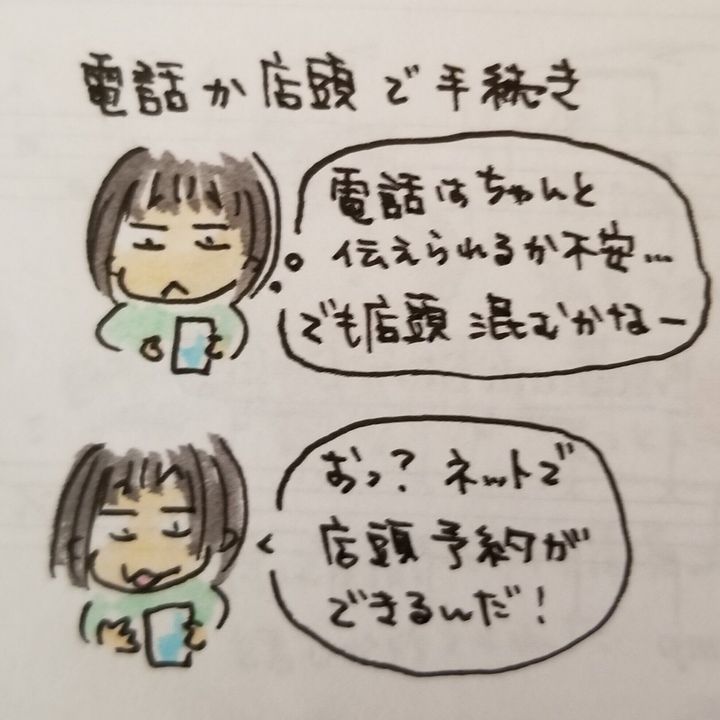 電話か店頭で手続き
電話はちゃんと
伝えられるか不安…
でも店頭 混むかなー
おっ？ネットで
店頭予約が
できるんだ！